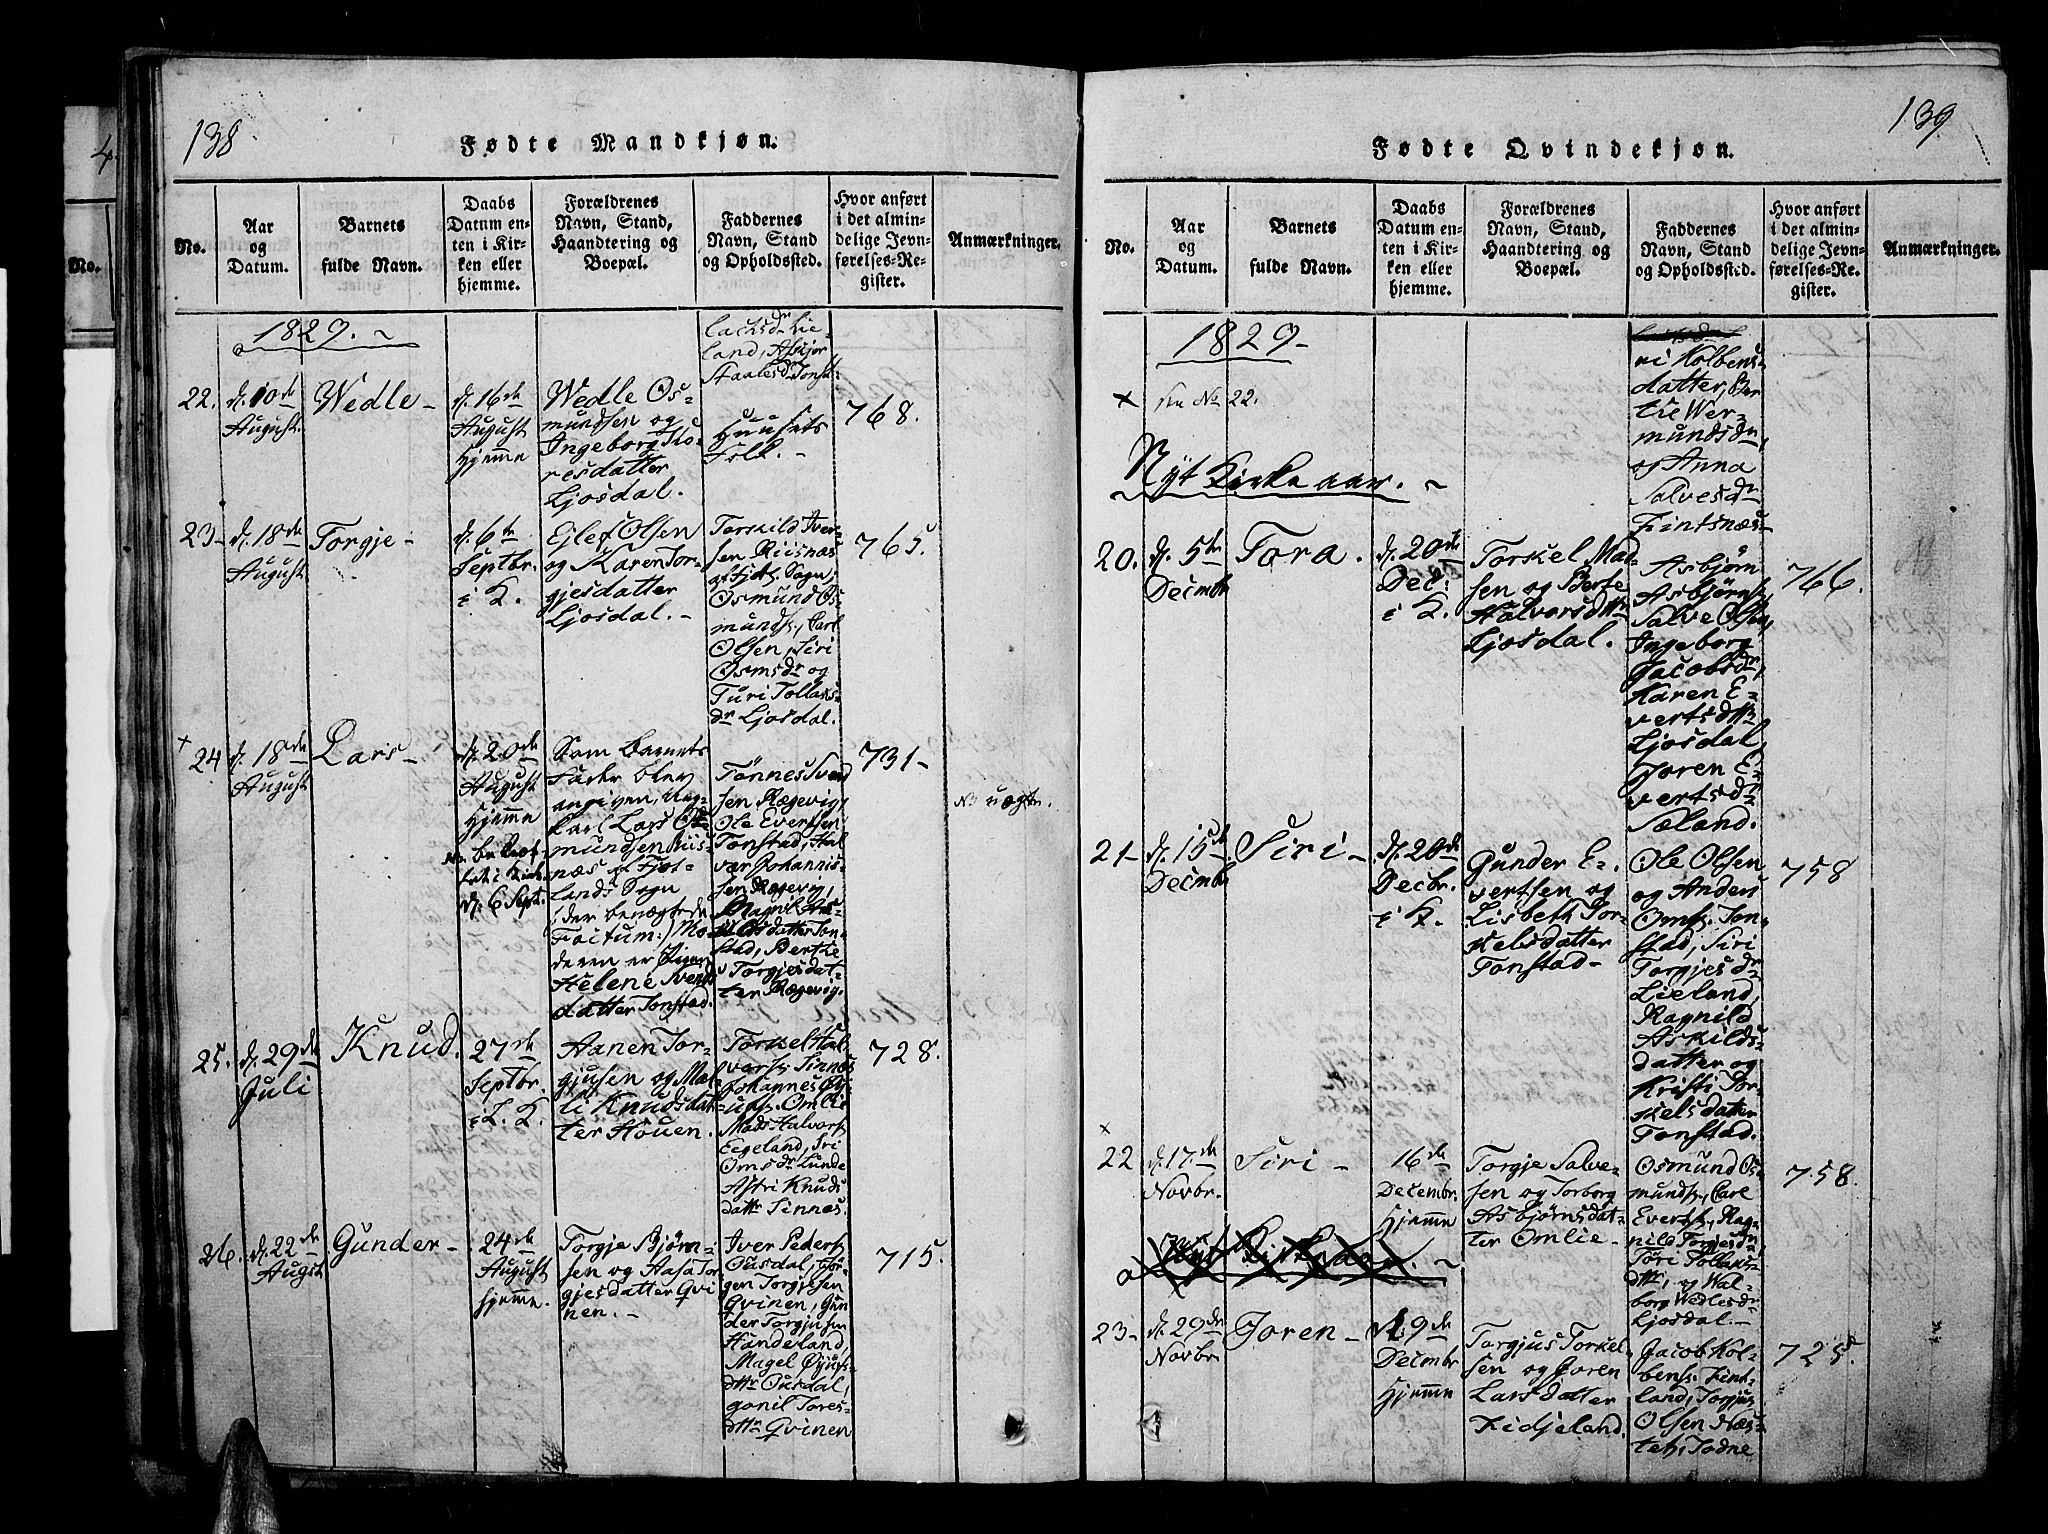 138
Fødte Mandkjøn.
No.
Aar
og
Datum.
Barnets
fulde Navn.
Daabs
Datum en-
ten i Kir-
ken eller
hjemme.
Forældrenes
Navn, Stand,
Haandtering og
Boepæl.
Faddernes
Navn, Stand
og Opholdssted.
Hvor anført
i det almin-
delige Jevn-
førelses-Re-
gister.
Anmærkninger.
1829.
lachsdr Lie-
land, Asbjør
Staalesdr Tonst:
22.
d. 10de
August.
Wedle
d. 16de
August
Hjemme
Wedle Os-
mundsen og
Ingeborg To-
resdatter
Ljosdal.
Huusets
Folk.
768.
23
d. 18de
August
Torgje
d. 6te
Septbr.
i K.
Ejlef Olsen
og Karen Tor-
gjesdatter
Ljosdal.
Torkild Iver-
sen Riisnæs
af Fjotl. Sogn,
Osmund Os-
munds., Carl
Olsen, Siri
Osmsdr og
Turi Tollaks-
dr Ljosdal.
765.
24
d. 18de
August
Lars
d. 20de
August
Hjemme
d. 6 Sept.
Som Barnets
Fader blev
angiven, Ung-
karl Lars Os-
mundsen Riis-
næs af Fjot-
lands Sogn
(der benægtede
Factum:) Mo-
deren er Pigen
Helene Svends
datter Tonstad.
Tønnes Svend
sen Røgevig,
Ole Evertsen
Tonstad, Hal
vor Johannis-
sen Røgevig,
Magnil As-
datter Ton-
stad, Berthe
Torgjesdat-
ter Røgevig.
731
uægte.
25.
d. 29de
Juli
Knud.
27de
Septbr.
i T. K.
Aanen Tor-
gjusen og Mal-
li Knudsdat
ter Houen.
Torkel Hal
vors. Sinnæs
Johannes Gu-
Omlie
Mads Halvors
Eegeland, Siri
Omsdr Lunde
Astri Knuds
dattr Sinnæs.
728.
26.
d. 22de
Augst
Gunder
24de
August
hjemme.
Torgje Bjørn-
sen og Aasa Tor
gjesdatter Qvi
nen.
Iver Peders
Ousdal, Jør-
gen Torgjesen
Qvinen, Gun
der Torgjusen
Handeland,
Magel Øjufs-
dttr Ousdal,
gonil Tores-
dttr Qvinen
715.
139
Fødte Qvindekjøn.
No.
Aar
og
Datum.
Barnets
fulde Navn.
Daabs
Datum en-
ten i Kir-
ken eller
hjemme.
Forældrenes
Navn, Stand,
Haandtering og
Boepæl.
Faddernes
Navn, Stand
og Opholdssted.
Hvor anført
i det almin-
delige Jevn-
førelses-Re.
gister.
Anmærkninger.
1829
ri Kolbens-
datter, Ber
tie Wer-
mundsdr,
og Anna
Salvesdr
Fintsnæs
see No 22.
Nyt Kirkeaar.
20.
d. 5te
Decmbr
Tora.
d. 20de
Dec:
i K.
Torkel Mad-
sen og Berte
Halvorsdttr
Ljosdal.
Asbjørn
Asbjørns.,
Salve Olsen,
Ingeborg
Jacobsdr,
Karen E-
vertsdttr
Ljosdal,
Joren E-
vertsdr
Sæland.
766.
21
d. 15de
Decmbr
Siri
d. 20de
Decbr.
i K.
Gunder E-
vertsen og
Lisbeth Tor-
kelsdatter
Tonstad
Ole Olsen
og Anders
Oms. Ton-
stad, Siri
Torgjesdr
Lieland,
Ragnild
Askilds-
datter og
Kristi Tor-
kelsdatter
Tonstad.
758
22
d. 17de
Novbr.
Siri
16de
Decembr.
Hjemme
Torgje Salve-
sen og Torborg
Asbjørnsdat-
ter Omlie
Osmund Os-
munds., Carl
Everts., Rag-
nild Torgjesdr,
Tori Tollaks
dttr, og Wal-
borg Wedlesdr
Ljosdal.
758.
23
d. 29de
Novbr.
Joren
d. 19de
Decmbr
Hjemme
Torgjus Torkel-
sen og Joren
Larsdatter
Fidjeland.
Jacob Kol-
bens. Fint-
land, Torgjus
Olsen Næs-
set, Todne
725.